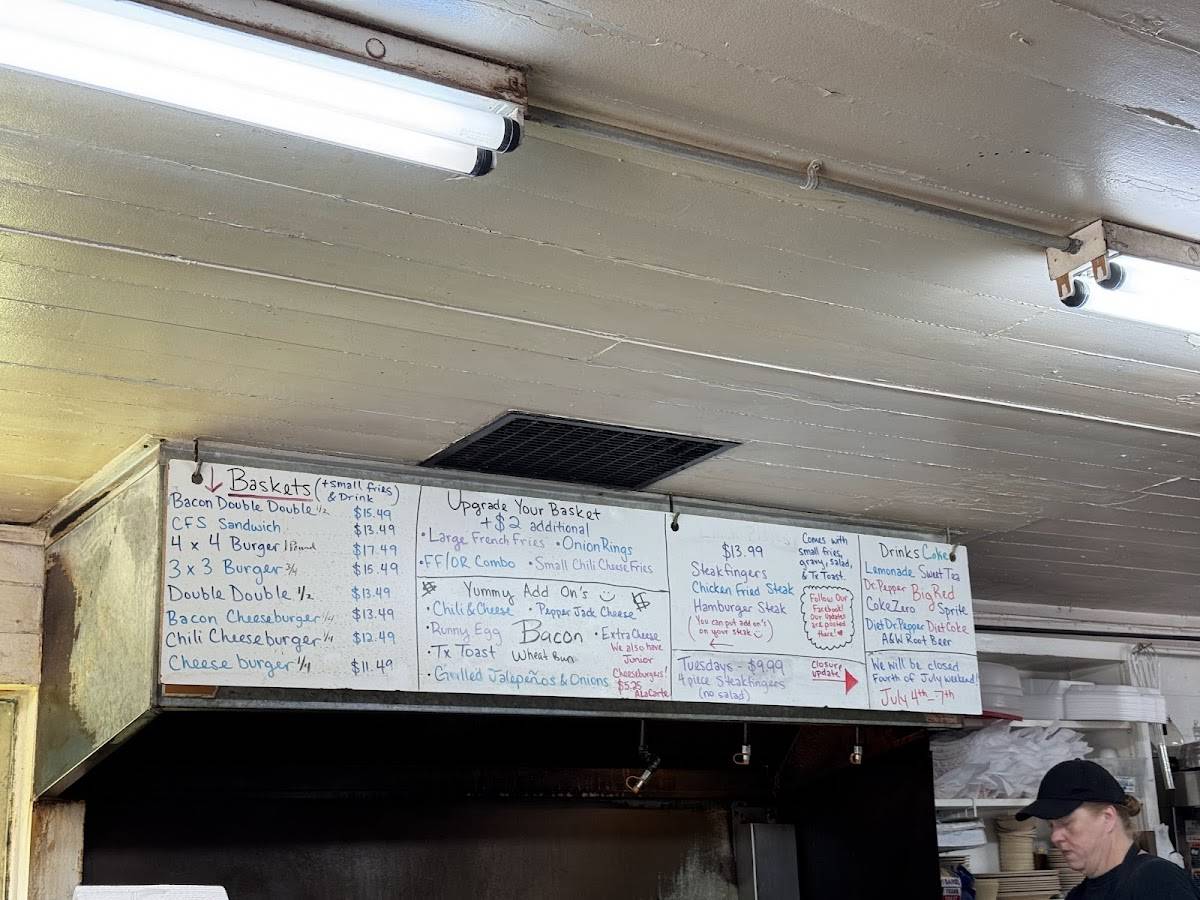 ↓ Baskets (+small fries & Drink)
Bacon Double Double 1/2 $15.49
CFS Sandwich $13.49
4 x 4 Burger 1 Pound $17.49
3 x 3 Burger 3/4 $15.49
Double Double 1/2 $13.49
Bacon Cheeseburger 1/4 $13.49
Chili Cheeseburger 1/4 $12.49
Cheese burger 1/4 $11.49
Upgrade Your Basket
+$2 additional
• Large French Fries • Onion Rings
• FF/OR Combo • Small Chili Cheese Fries
$ Yummy Add On's $
• Chili & Cheese • Pepper Jack Cheese
• Runny Egg Bacon • Extra Cheese
• Tx Toast Wheat Bun
• Grilled Jalepeños & Onions
We also have
Junior
Cheeseburgers!
$5.25
AlaCarte
$13.99
Steakfingers
Chicken Fried Steak
Hamburger Steak
(You can put add on's
on your steak)
Comes with
small fries,
gravy, salad,
& Tx Toast.
Follow Our
Facebook!
Our Updates
are posted
there!
Tuesdays - $9.99
4 piece Steakfingers
(no salad)
Closure
update!
Drinks Coke
Lemonade Sweet Tea
Dr. Pepper Big Red
Coke Zero Sprite
Diet Dr. Pepper Diet Coke
A&W Root Beer
We will be closed
Fourth of July weekend!
July 4th - 7th